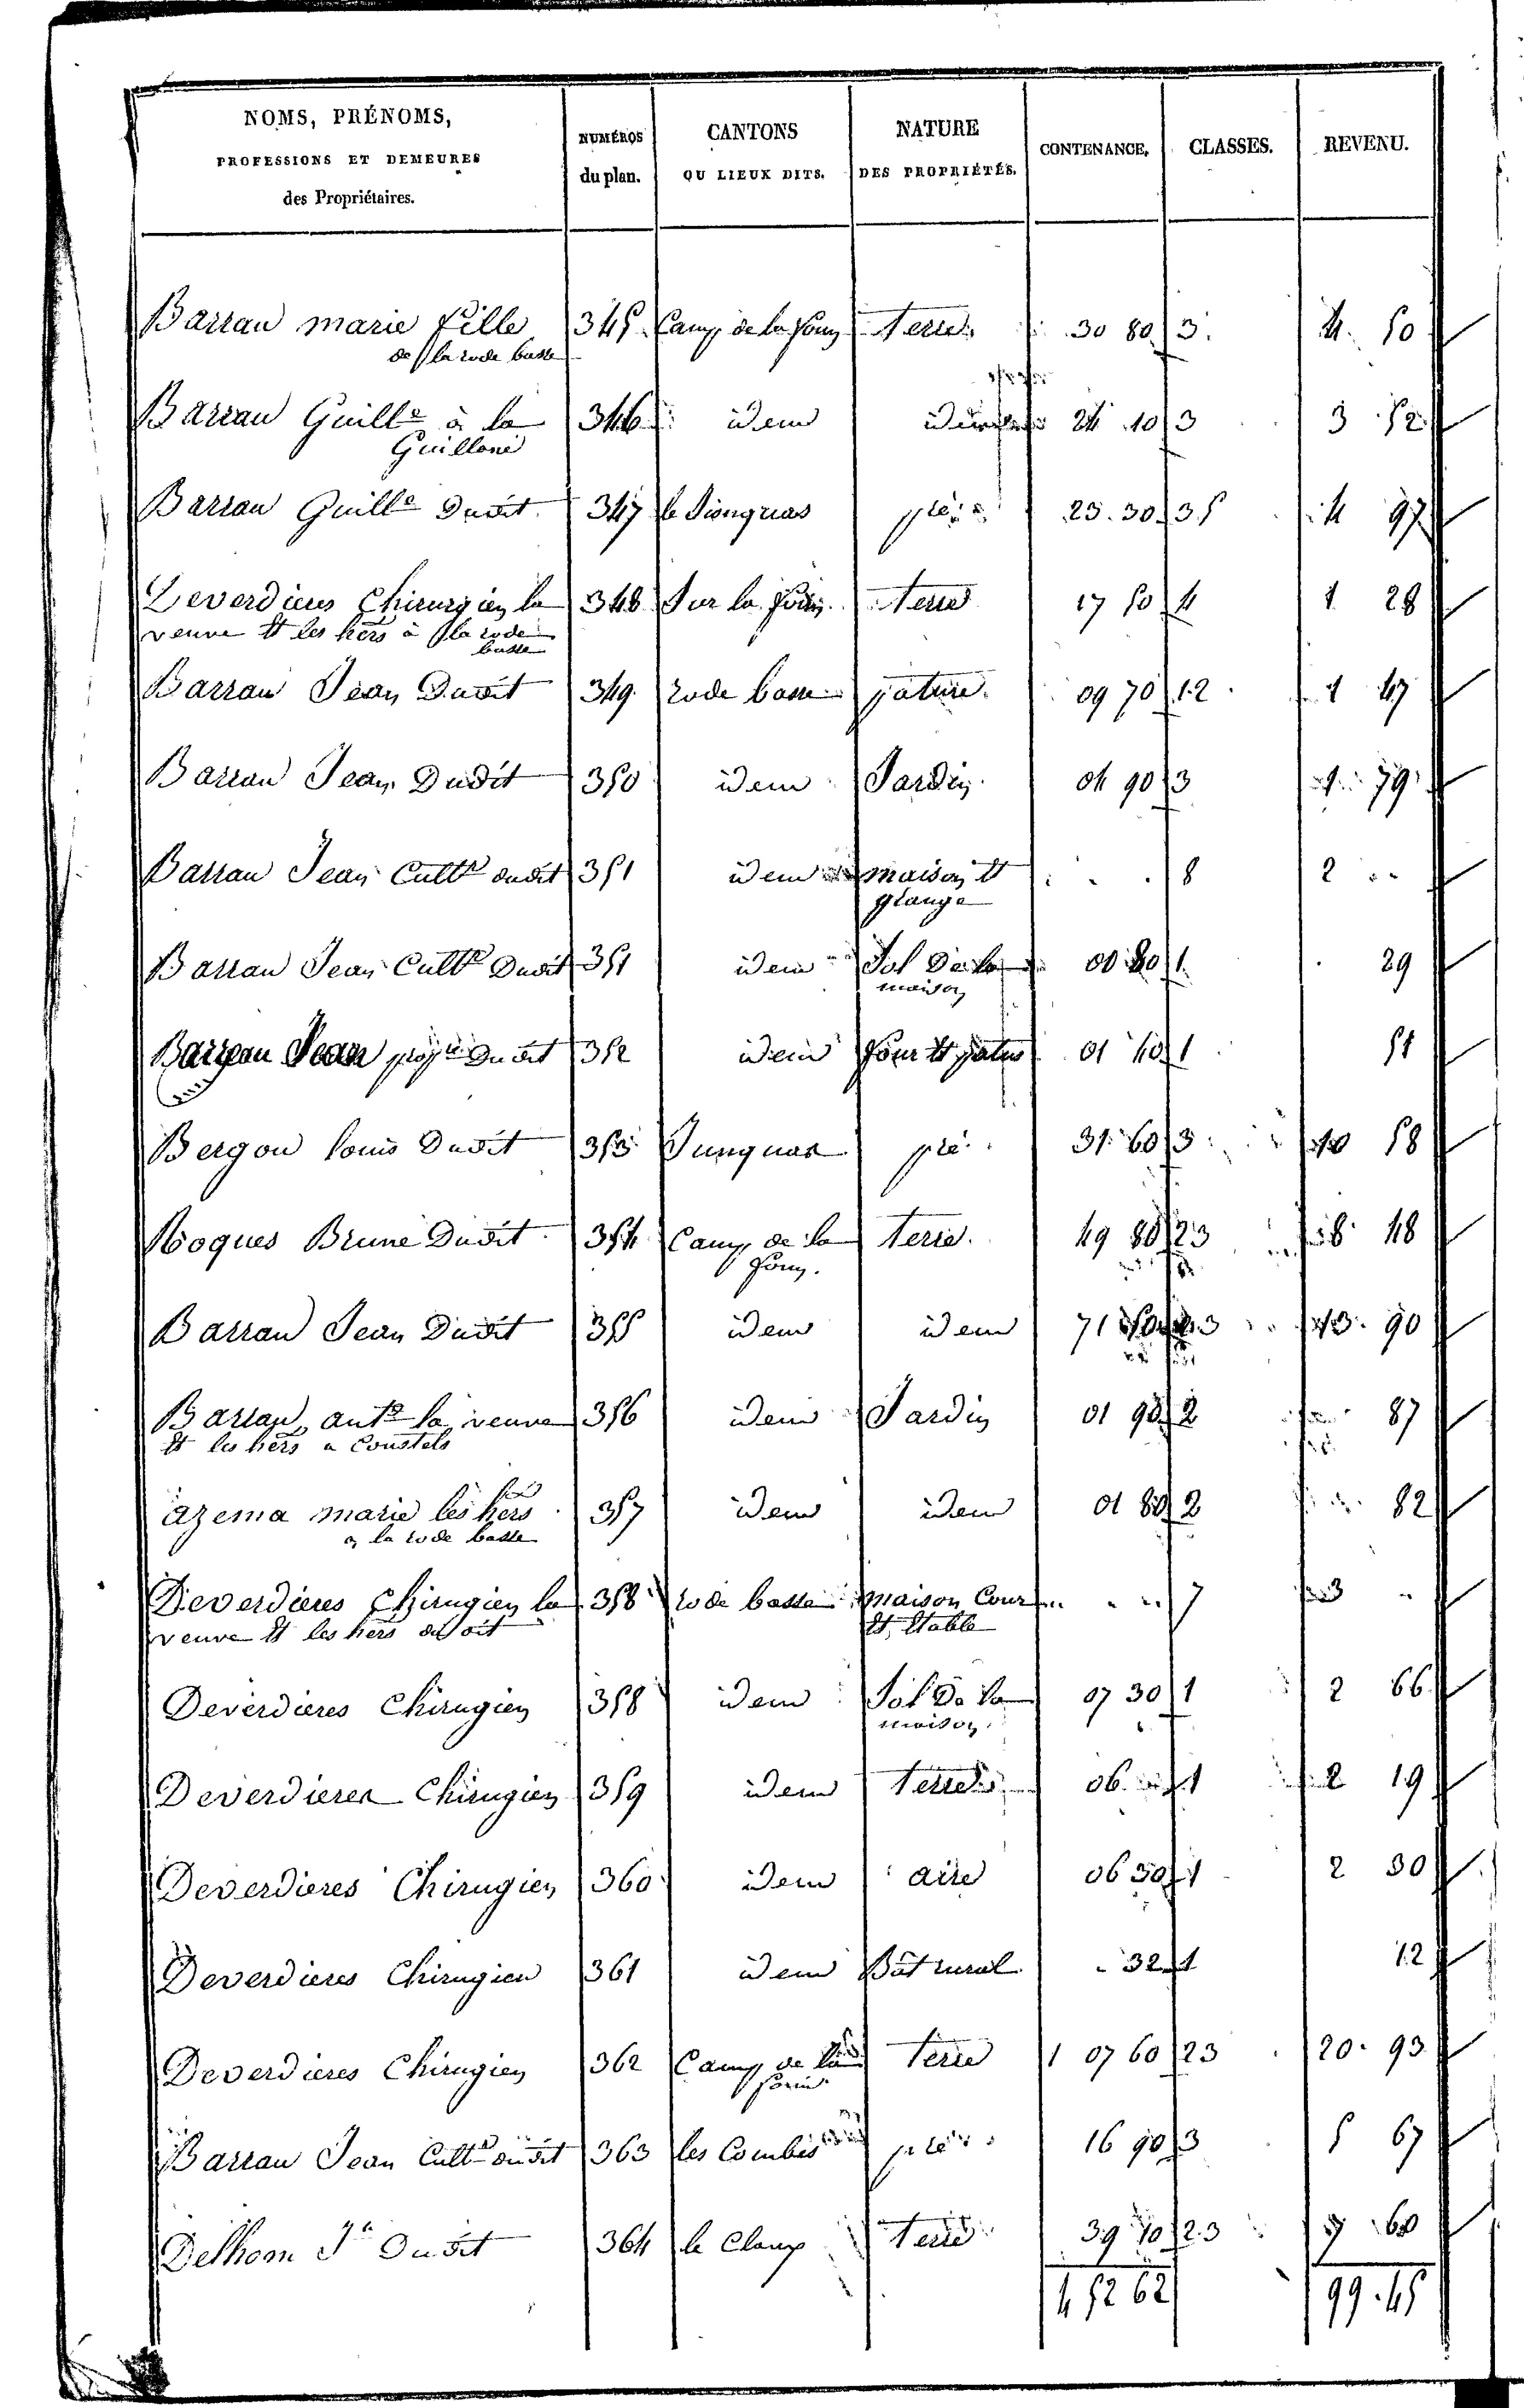 NOMS, PRÉNOMS,
PROFESSIONS ET DEMEURES
des Propriétaires.
NUMÉROS
du plan.
CANTONS
OU LIEUX DITS.
NATURE
DES PROPRIÉTÉS.
CONTENANCE.
CLASSES.
REVENU.
Barrau marie fille 345 Camp de la foun terre 30 80 3 4 50
de la rode basse
Barrau Guille à la 346 idem idem 24 10 3 3 52
Guilloné
Barrau Guille Dudit 347 le pré 23 30 3 97
Deverdieres Chirurgien la 348 Sur la foun terre 17 50 4 1 28
veuve et les hers à la rode
basse
Barrau Jean Dudit 349 rode basse pature 09 70 1.2 1 47
Barrau Jean Dudit 350 idem Jardin 04 90 3 1 79
Barrau Jean Cultr dudit 351 idem maison et 8 2
grange
Barrau Jean Cultr Dudit 351 idem Sol De la 00 80 1 29
maison
Barrau Jean propre Dudit 352 idem four et patus 01 40 1 51
Bergon louis Dudit 353 Junquas pré 31 60 3 10 58
Roques Brune Dudit 354 Camp de la terre 49 80 23 8 48
foun.
Barrau Jean Dudit 355 idem idem 71 50 13 90
Barrau ante la veuve 356 idem Jardin 01 90 2 87
et les hers a Coustels
azema marie les hers 357 idem idem 01 80 2 82
a la rode basse
Deverdieres Chirugien la 358 rode basse maison Cour 7 3
veuve et les hers dudit et Etable
Deverdieres Chirugien 358 idem Sol De la 07 30 1 2 66
maison
Deverdieres Chirugien 359 idem terre 06 1 2 19
Deverdieres Chirugien 360 idem aire 06 30 1 2 30
Deverdieres Chirugien 361 idem Bât rural 32 1 12
Deverdieres Chirugien 362 Camp de la terre 1 07 60 23 20 93
Barrau Jean Cultr dudit 363 les Combes pré 16 90 3 5 67
Delhom Jn Dudit 364 le Claux terre 39 10 2.3 7 60
4 52 62 99.45